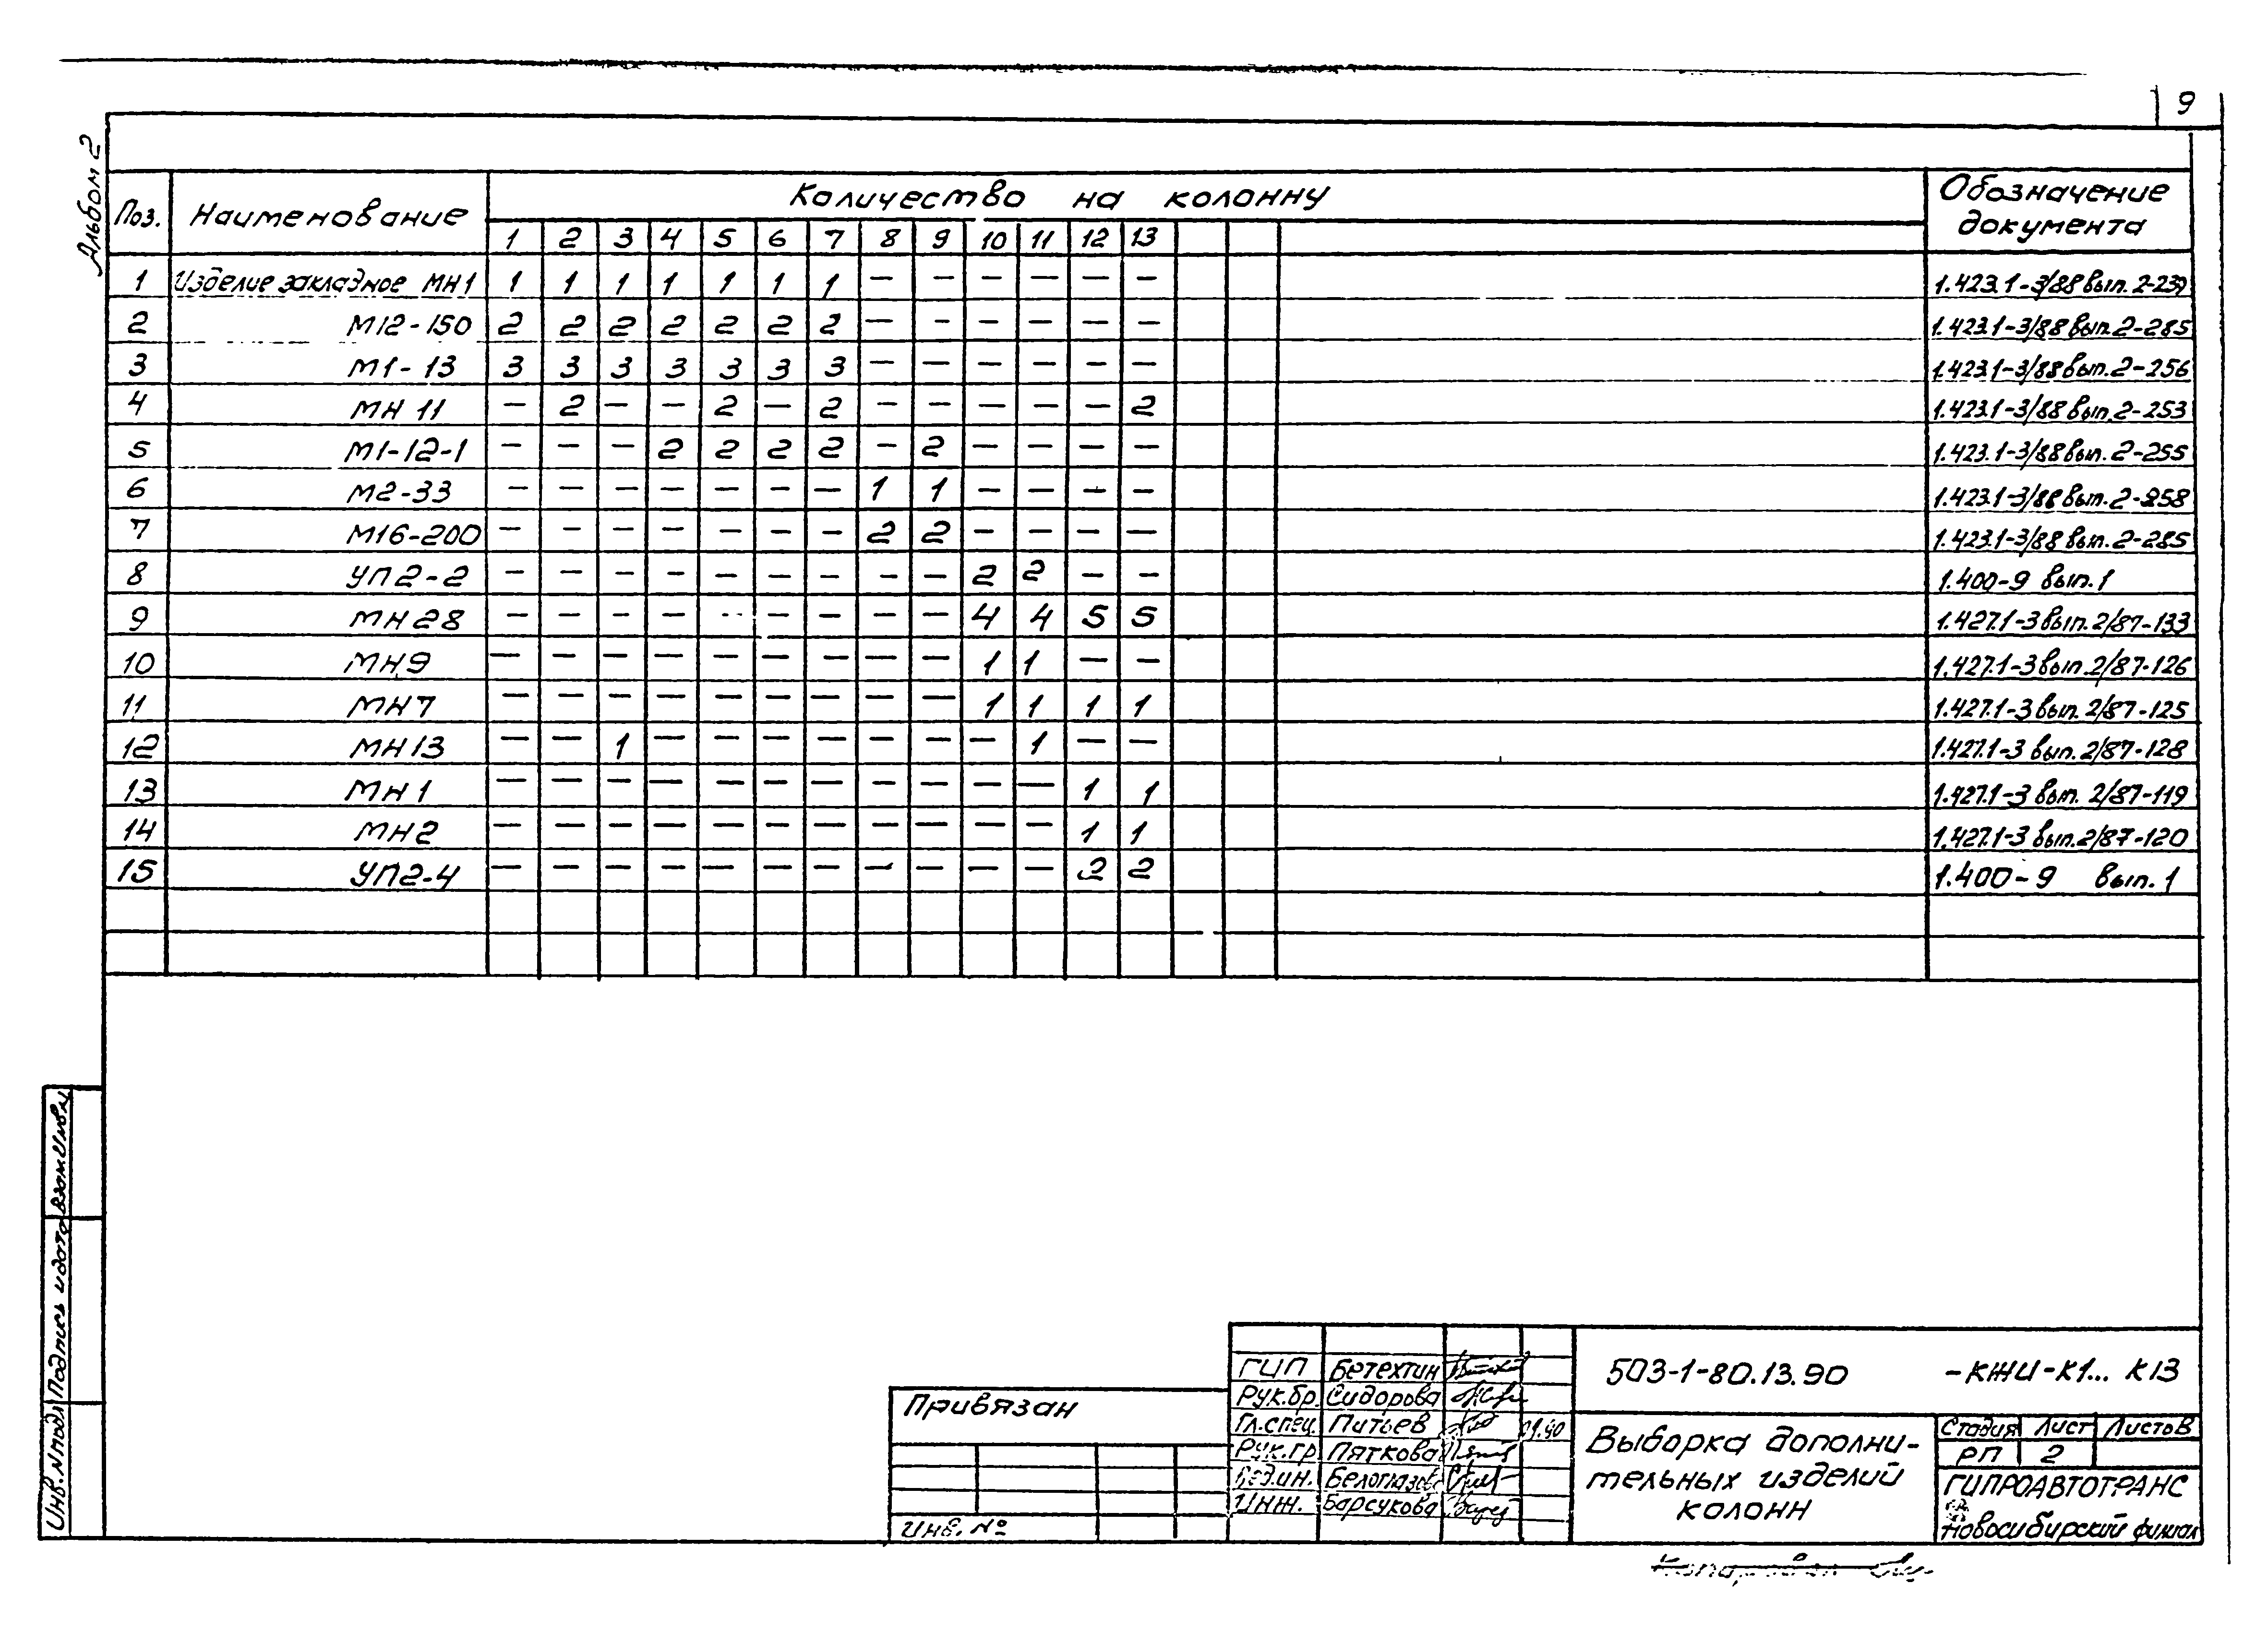 9
Альбом 2
Поз. Наименование Количество на колонну Обозначение документа
1 2 3 4 5 6 7 8 9 10 11 12 13
1 Изделие закладное МН1 1 1 1 1 1 1 1 — — — — — — 1.423.1-3/88 вып. 2-239
2 М12-150 2 2 2 2 2 2 2 — — — — — — 1.423.1-3/88 вып. 2-285
3 М1-13 3 3 3 3 3 3 3 — — — — — — 1.423.1-3/88 вып. 2-256
4 МН 11 — 2 — — 2 — 2 — — — — — 2 1.423.1-3/88 вып. 2-253
5 М1-12-1 — — — 2 2 2 2 — 2 — — — — 1.423.1-3/88 вып. 2-255
6 М2-33 — — — — — — — 1 1 — — — — 1.423.1-3/88 вып. 2-258
7 М16-200 — — — — — — — 2 2 — — — — 1.423.1-3/88 вып. 2-285
8 УП2-2 — — — — — — — — — 2 2 — — 1.400-9 вып. 1
9 МН28 — — — — — — — — — 4 4 5 5 1.427.1-3 вып. 2/87-133
10 МН9 — — — — — — — — — 1 1 — — 1.427.1-3 вып. 2/87-126
11 МН7 — — — — — — — — — 1 1 1 1 1.427.1-3 вып. 2/87-125
12 МН13 — — 1 — — — — — — — 1 — — 1.427.1-3 вып. 2/87-128
13 МН1 — — — — — — — — — — — 1 1 1.427.1-3 вып. 2/87-119
14 МН2 — — — — — — — — — — — 1 1 1.427.1-3 вып. 2/87-120
15 УП2-4 — — — — — — — — — — — 2 2 1.400-9 вып. 1
Инв. № подл Подпись и дата Взам. Инв. №
Привязан
Инв. №
ГИП Бетехтин
Рук.бр. Сидорова
Гл.спец. Питьев 01.90
Рук.гр. Пяткова
Вед.ин.
Инж. Барсукова
503-1-80.13.90 -КЖИ-К1... К13
Выборка дополни-
тельных изделий
колонн
Стадия Лист Листов
РП 2
ГИПРОАВТОТРАНС
Новосибирский филиал
Копировал